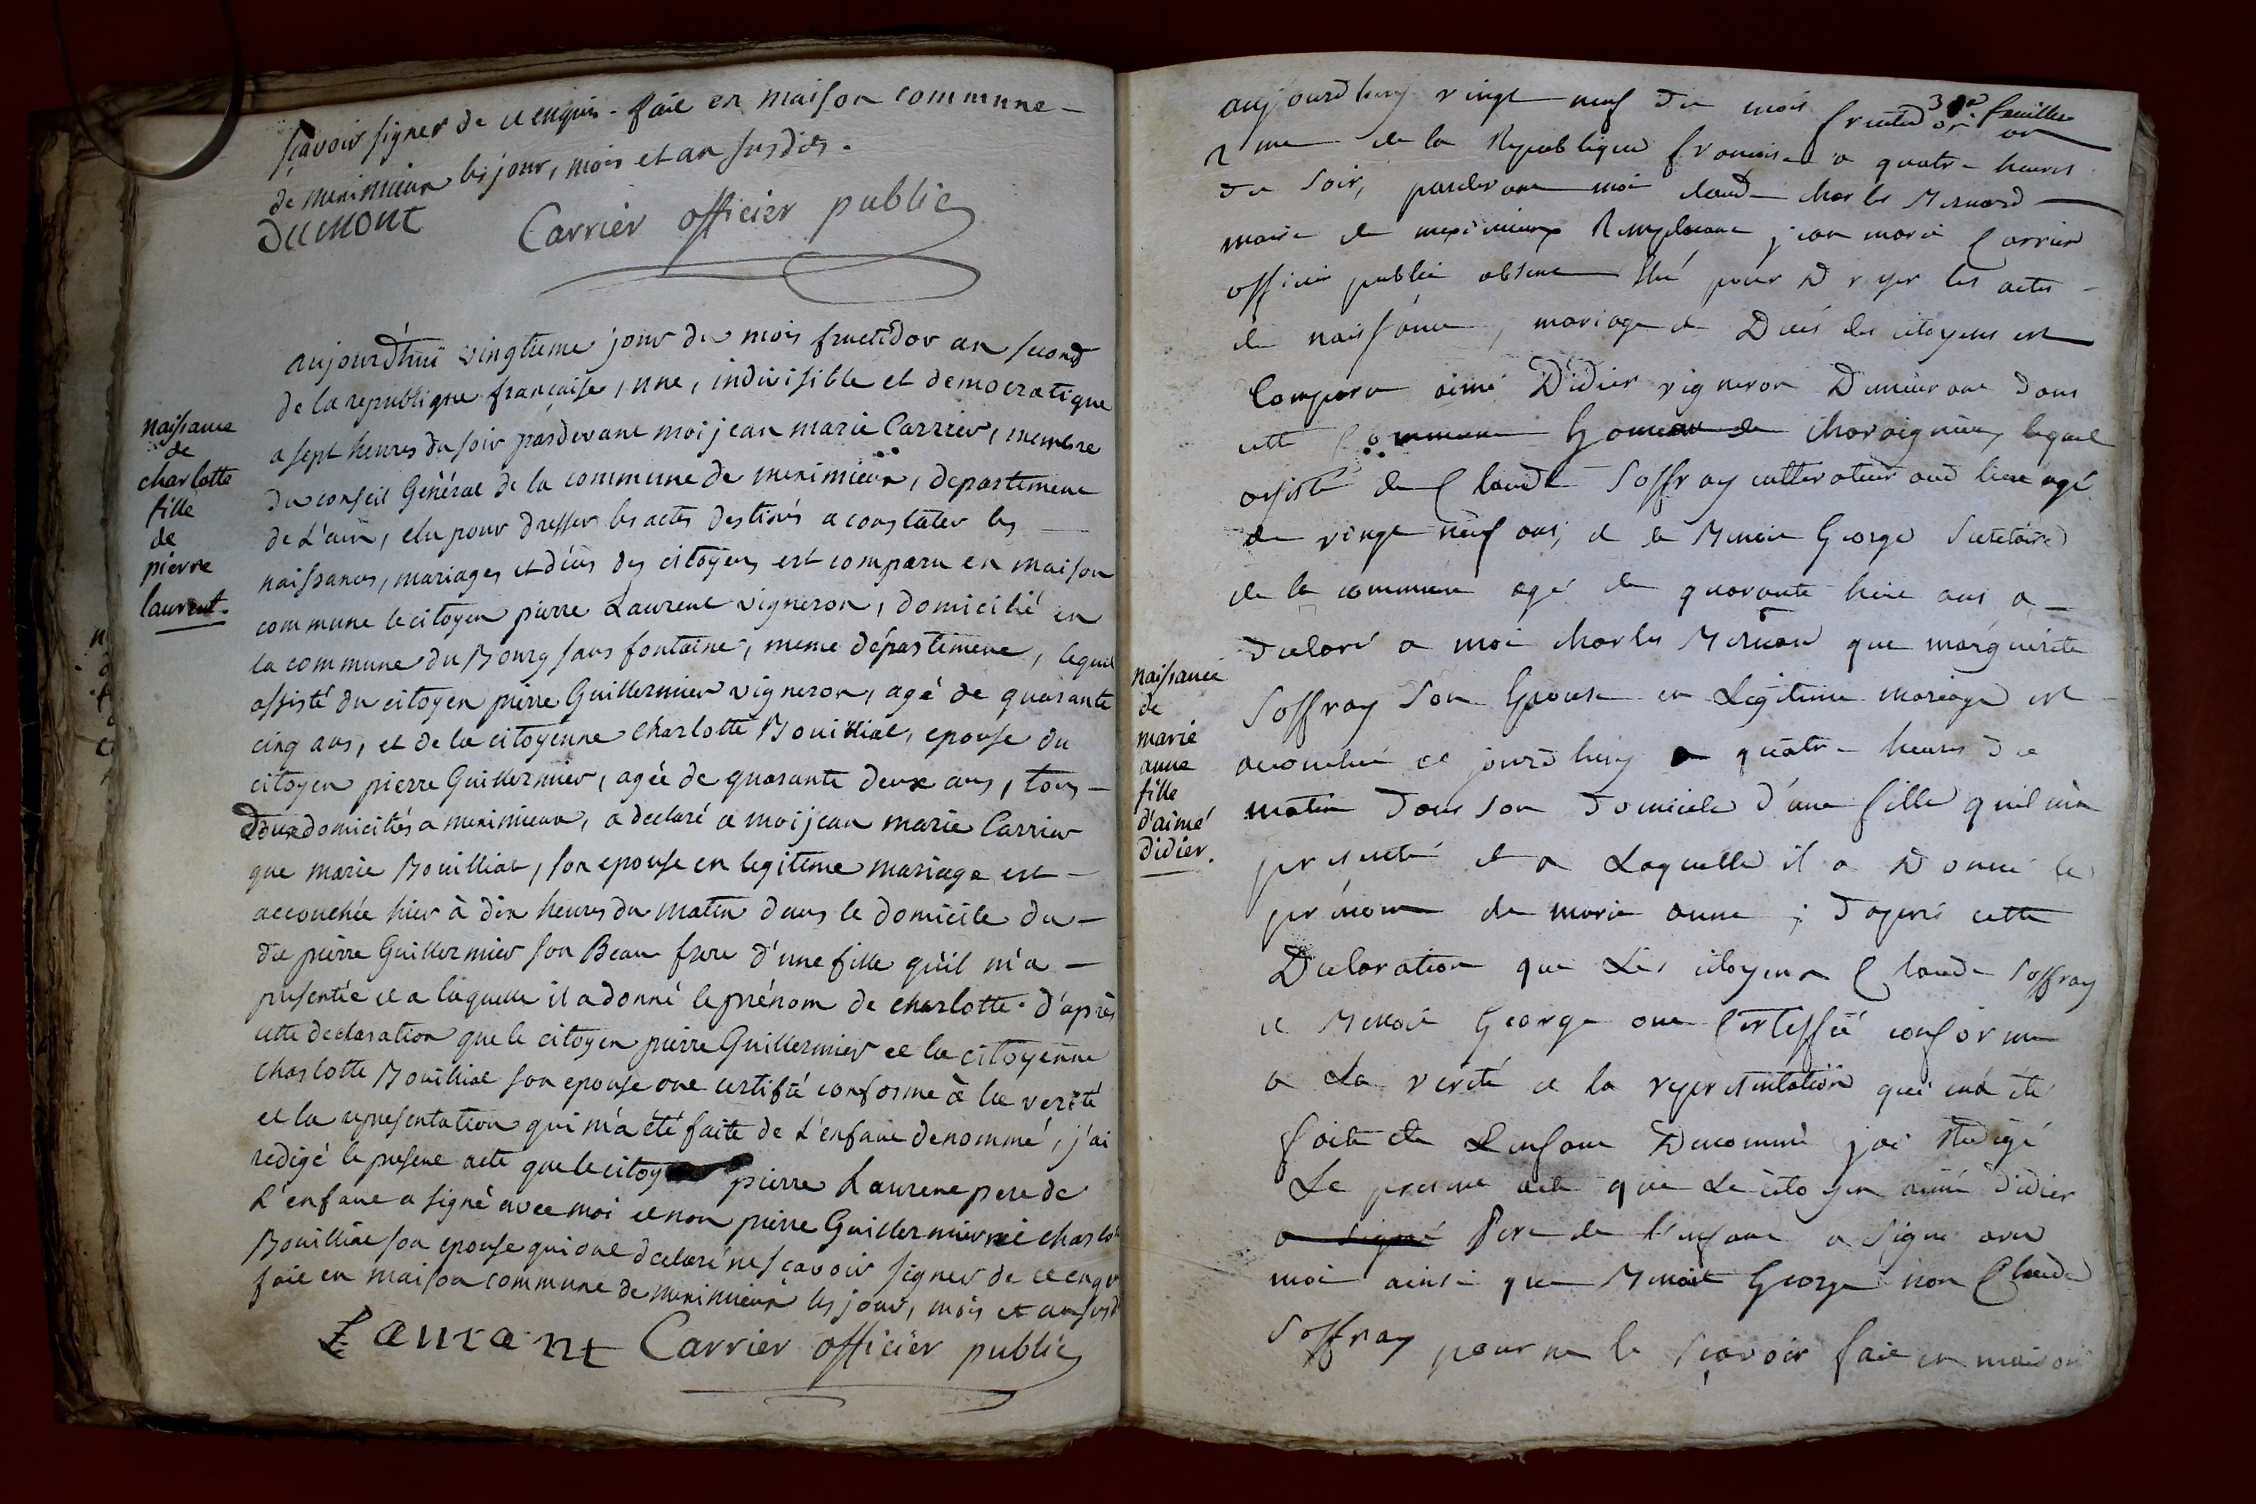 sçavoir signer de ce enquis. fait en maison commune
de meximieux les jour, mois et an susdits.
Dumont Carrier officier public
aujourd'hui vingtieme jour du mois fructidor an second
de la republique française, une, indivisible et democratique
a sept heures du soir pardevant moi jean marie Carrier, membre
du conseil Général de la commune de meximieux, departement
de L'ain, elu pour dresser les actes destinés a constater les
naissances, mariages et décès des citoyens est comparu en maison
commune le citoyen pierre Laurent vigneron, domicilié en
la commune du Bourg sans fontaine, meme département, lequel
assisté du citoyen pierre Guillermier vigneron, agé de quarante
cinq ans, et de la citoyenne charlotte Bouilliat, epouse du
citoyen pierre Guillermier, agée de quarante deux ans, tous
deux domiciliés a meximieux, a declaré a moi jean marie Carrier
que marie Bouilliat, son epouse en legitime mariage est
accouchée hier à dix heures du matin dans le domicile du
dit pierre Guillermier son Beau frere d'une fille qu'il m'a
presentée et a laquelle il a donné le prénom de charlotte. d'après
cette declaration que le citoyen pierre Guillermier et la citoyenne
charlotte Bouilliat son epouse ont certifié conforme à la verité
et la representation qui m'a été faite de L'enfant denommé, j'ai
redigé le present acte que le citoy pierre Laurent pere de
L'enfant a signé avec moi et non pierre Guillermier ni charlot
Bouilliat son epouse qui ont declaré ne sçavoir signer de ce enqu
fait en maison commune de meximieux les jour, mois et an susd
Laurant Carrier officier public
naissance
de
charlotte
fille
de
pierre
laurent.
3 feuillet
aujourdhuy vingt neuf du mois fructidor an
2 me de la Republique francaise a quatre heures
du soir, pardevant moi claude charles Bernard
maire de meximieux Remplacant jean marie Carrier
officier public absent Elu pour Dresser les actes
de naissance, mariage et Decés des citoyens est
Comparu aimé Didier vigneron Demeurant dans
cette Commune hameau de charaignieu, lequel
assisté de Claude Soffray cultivateur aud lieu agé
de vingt neuf ans, et de Benoit George Secretaire
de la commune agé de quarante huit ans a
declaré a moi charles Bernard que marguerite
Soffray Son Epouse en Legitime mariage est
accouchée ce jourdhuy a quatre heures du
matin dans son domicile d'une fille quil m'a
presenté et a Laquelle il a Donné le
prénom de marie anne; d'après cette
Declaration que Les citoyens Claude Soffray
et Benoit George ont Certiffié conforme
a La verité et la representation qui m'a été
faite de Lenfant Denommé jai Redigé
Le present acte que Le citoyen aimé didier
a signé Pere de l'enfant a Signé avec
moi ainsi que Benoit George non Claude
Soffray pour ne le sçavoir fait en maison
naissance
de
marie
anne
fille
d'aimé
didier.